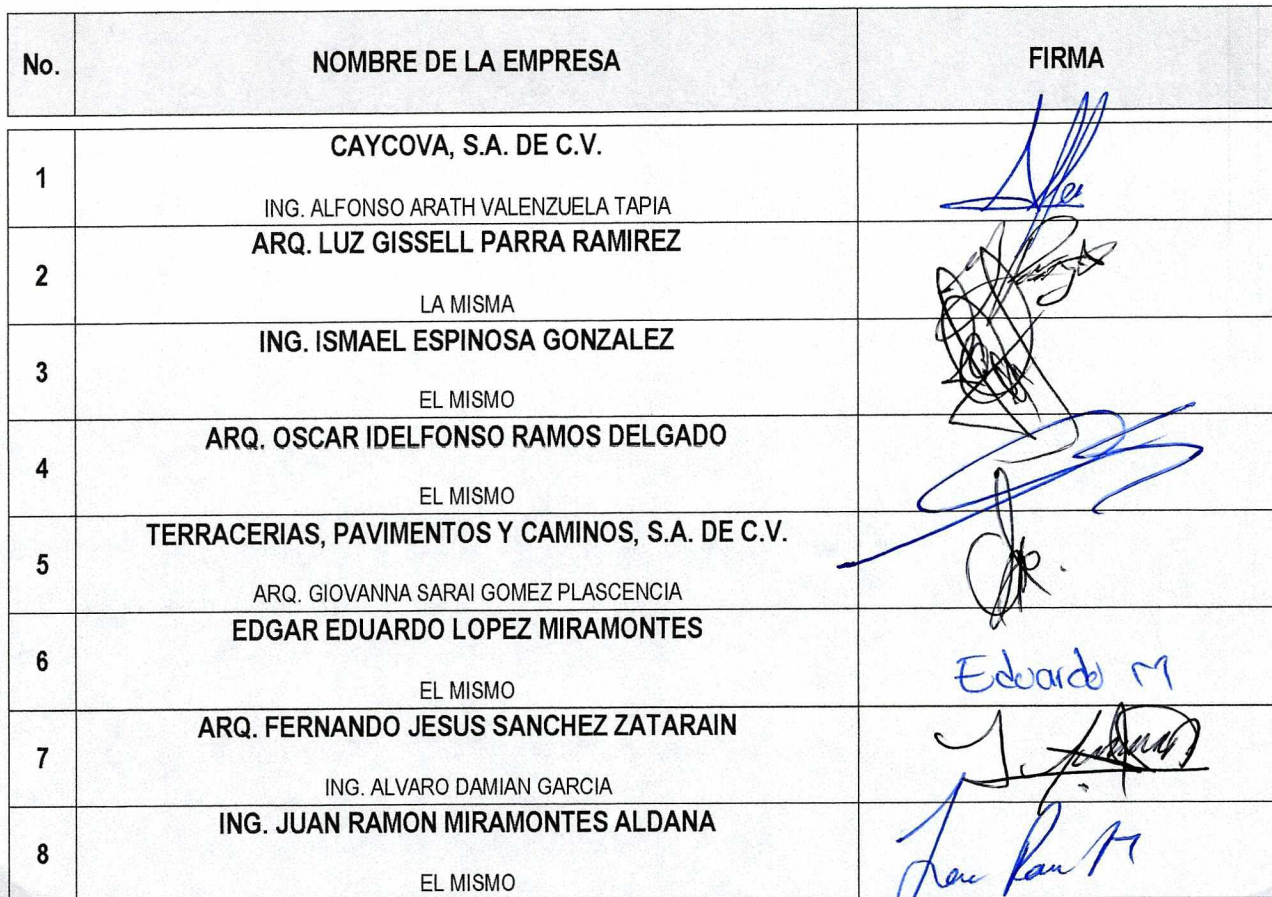 No. NOMBRE DE LA EMPRESA FIRMA
1 CAYCOVA, S.A. DE C.V.
ING. ALFONSO ARATH VALENZUELA TAPIA
2 ARQ. LUZ GISSELL PARRA RAMIREZ
LA MISMA
3 ING. ISMAEL ESPINOSA GONZALEZ
EL MISMO
4 ARQ. OSCAR IDELFONSO RAMOS DELGADO
EL MISMO
5 TERRACERIAS, PAVIMENTOS Y CAMINOS, S.A. DE C.V.
ARQ. GIOVANNA SARAI GOMEZ PLASCENCIA
6 EDGAR EDUARDO LOPEZ MIRAMONTES
EL MISMO
Eduardo M
7 ARQ. FERNANDO JESUS SANCHEZ ZATARAIN
ING. ALVARO DAMIAN GARCIA
8 ING. JUAN RAMON MIRAMONTES ALDANA
EL MISMO